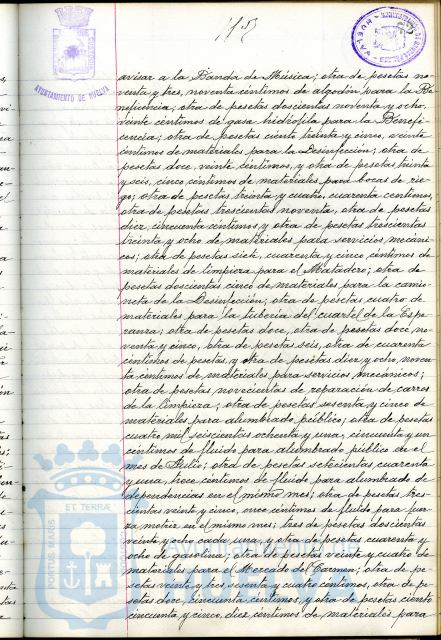 avisar a la Banda de Música; otra de pesetas no-
venta y tres, noventa céntimos de algodón para la Be-
neficencia; otra de pesetas doscientas noventa y ocho,
veinte céntimos de gasa hidrófila para la Benefi-
cencia; otra de pesetas ciento treinta y cinco, veinte
céntimos de materiales para la Desinfección; otra de
pesetas doce, veinte céntimos, y otra de pesetas treinta
y seis, cinco céntimos de materiales para bocas de rie-
go; otra de pesetas treinta y cuatro, cuarenta céntimos,
otra de pesetas trescientas noventa, otra de pesetas
diez, cincuenta céntimos y otra de pesetas trescientas
treinta y ocho de materiales para servicios mecáni-
cos; otra de pesetas siete, cuarenta y cinco céntimos de
materiales de limpieza para el Matadero; otra de
pesetas doscientas cinco de materiales para la camio-
neta de la Desinfección; otra de pesetas cuatro de
materiales para la tubería del cuartel de la Espe-
ranza; otra de pesetas doce, otra de pesetas doce, no-
venta y cinco, otra de pesetas seis, otra de cuarenta
céntimos de pesetas, y otra de pesetas diez y ocho, noven-
ta céntimos de materiales para servicios mecánicos;
otra de pesetas novecientas de reparación de carros
de la limpieza; otra de pesetas sesenta y cinco de
materiales para alumbrado público; otra de pesetas
cuatro mil seiscientas ochenta y una, cincuenta y un
céntimos de fluido para alumbrado público en el
mes de Julio; otra de pesetas setecientas cuarenta
y una, trece céntimos de fluido para alumbrado de
dependencias en el mismo mes; otra de pesetas tres-
cientas veinte y cinco, once céntimos de fluido para fuer-
za motriz en el mismo mes; tres de pesetas doscientas
veinte y ocho cada una, y otra de pesetas cuarenta y
ocho de gasolina; otra de pesetas veinte y cuatro de
materiales para el Mercado del Carmen; otra de pe-
setas veinte y tres, sesenta y cuatro céntimos, otra de pe-
setas doce, cincuenta céntimos, y otra de pesetas ciento
cincuenta y cinco, diez céntimos de materiales para
AYUNTAMIENTO DE HUELVA
PORTUS MARIS ET TERRAE